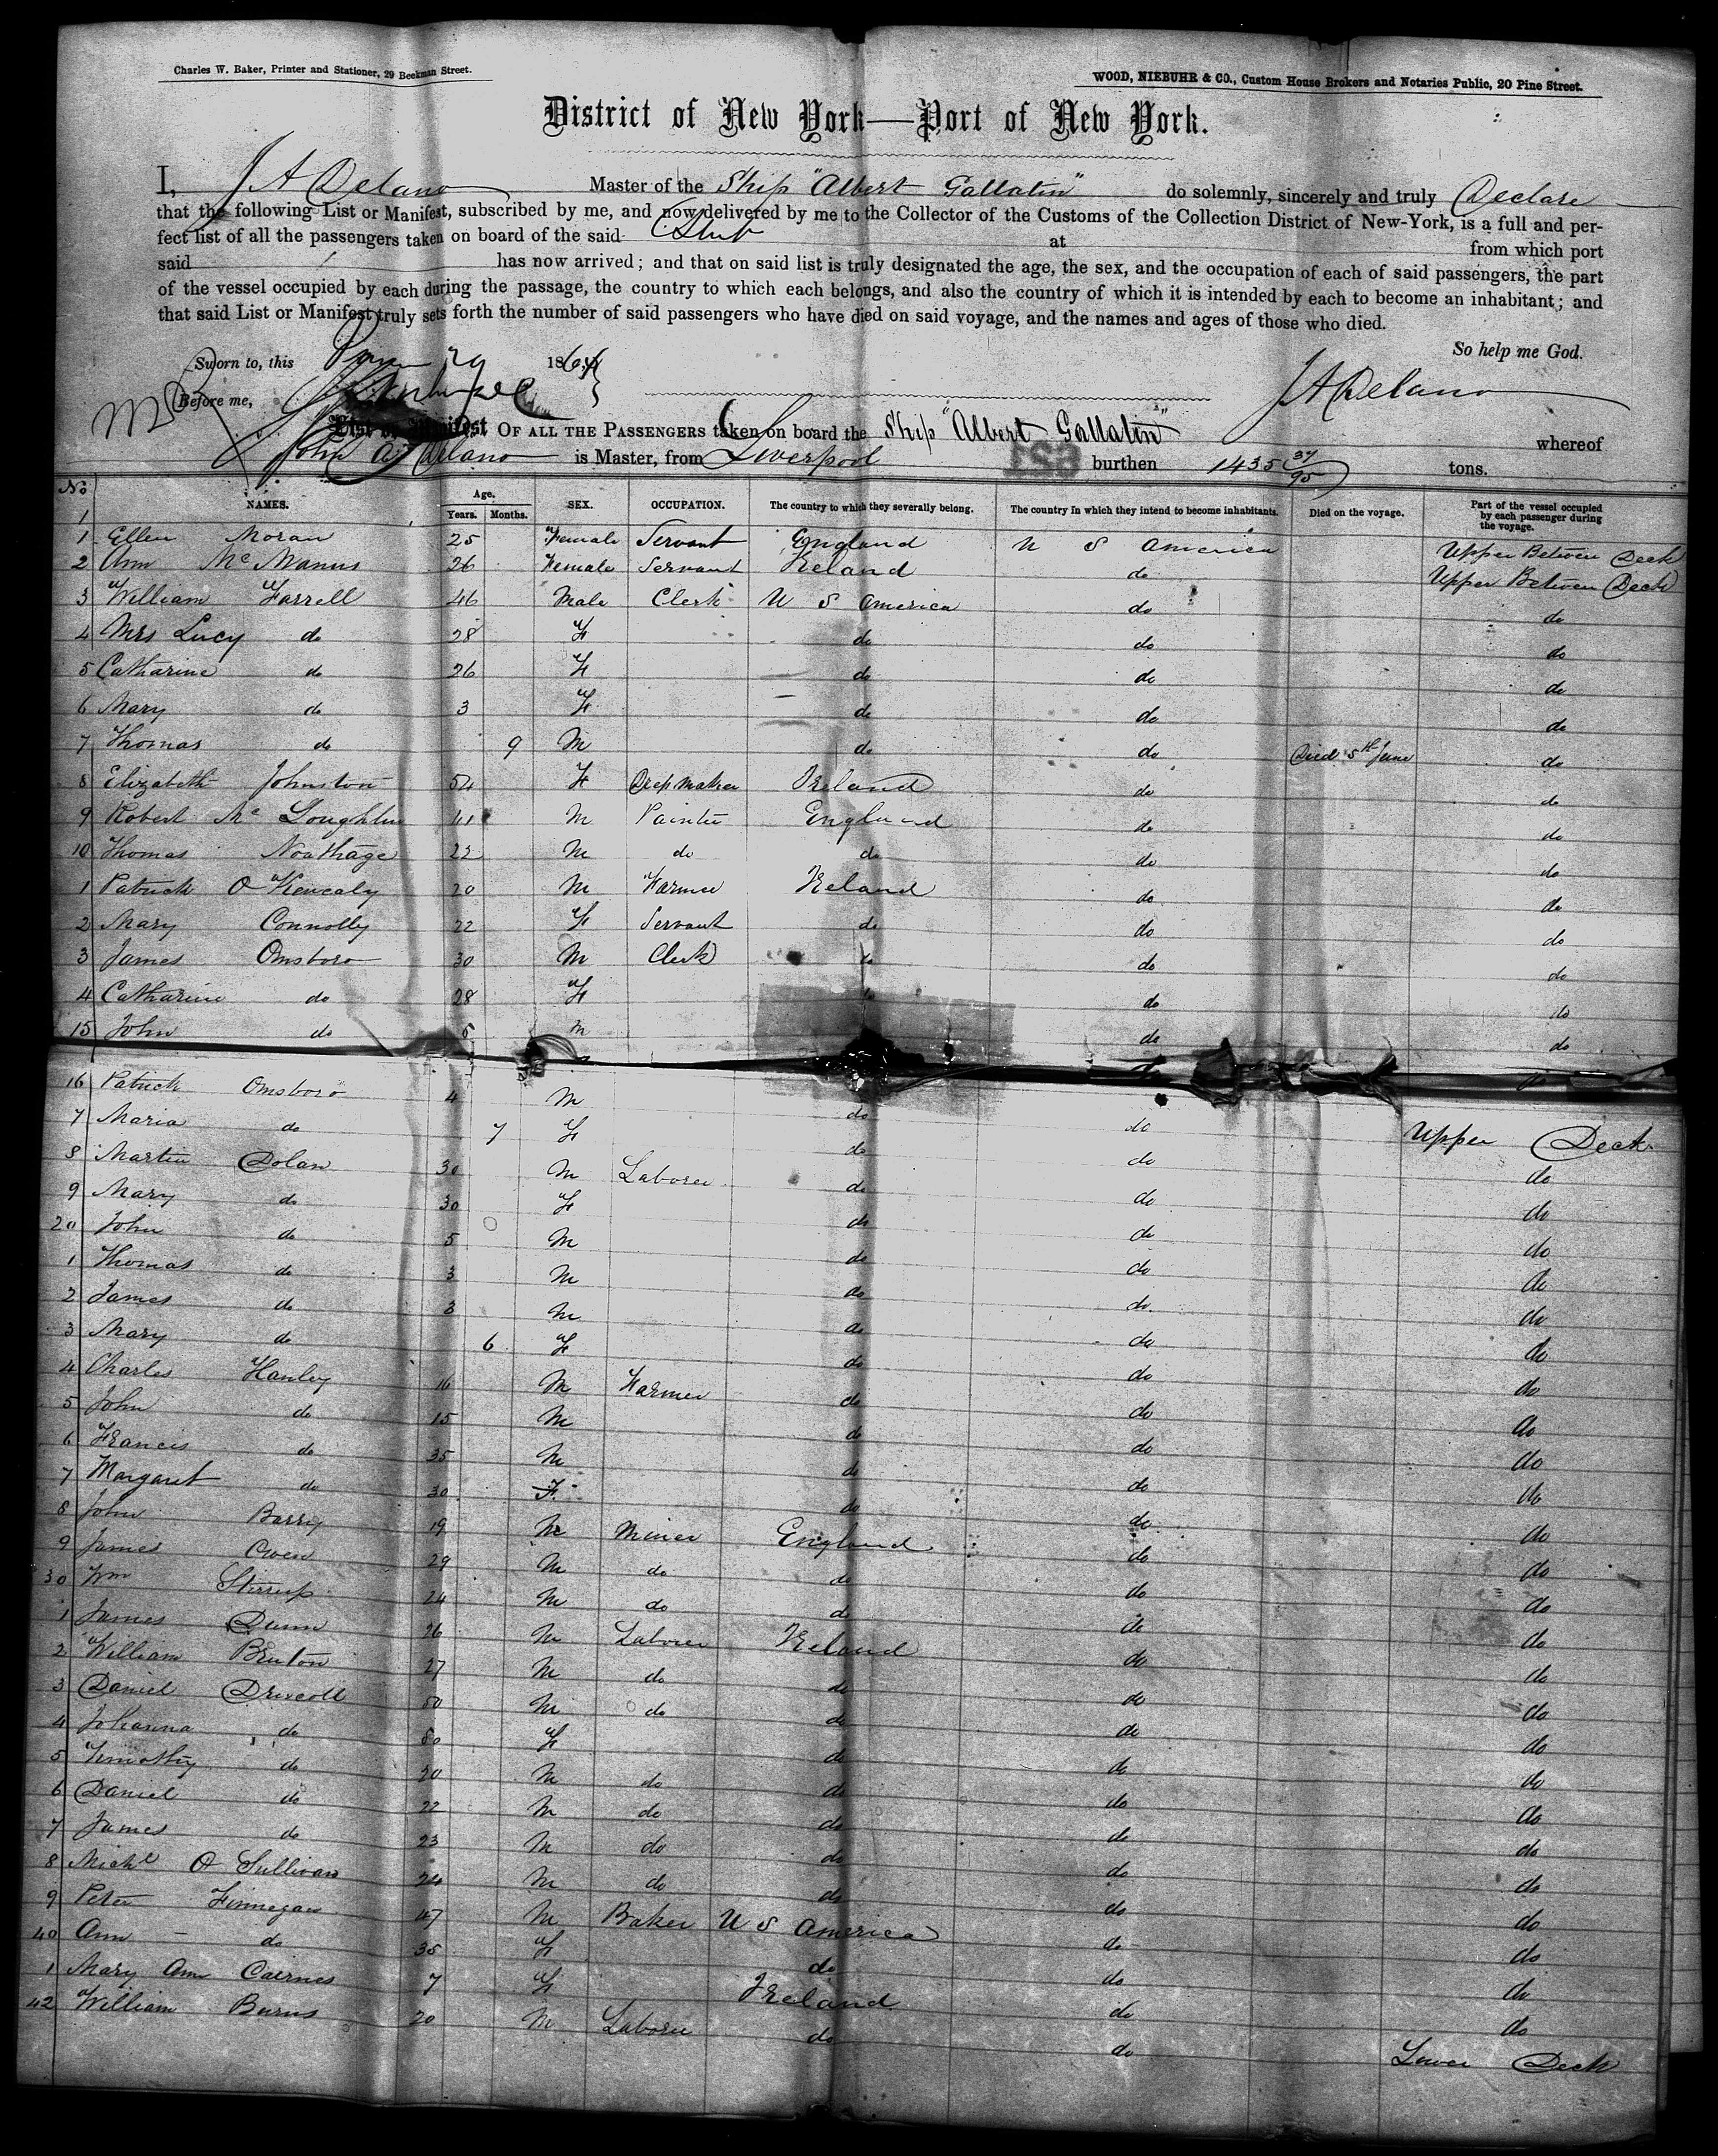 Charles W. Baker, Printer and Stationer, 29 Beekman Street.
WOOD, NIEBUHR & CO., Custom House Brokers and Notaries Public, 20 Pine Street.
District of New York—Port of New York.
I, J A Delano Master of the Ship "Albert Gallatin" do solemnly, sincerely and truly Declare
that the following List or Manifest, subscribed by me, and now delivered by me to the Collector of the Customs of the Collection District of New-York, is a full and per-
fect list of all the passengers taken on board of the said Ship at from which port
said has now arrived; and that on said list is truly designated the age, the sex, and the occupation of each of said passengers, the part
of the vessel occupied by each during the passage, the country to which each belongs, and also the country of which it is intended by each to become an inhabitant; and
that said List or Manifest truly sets forth the number of said passengers who have died on said voyage, and the names and ages of those who died.
So help me God.
Sworn to, this 29 1864
J A Delano
Before me,
List or Manifest OF ALL THE PASSENGERS taken on board the Ship "Albert Gallatin" whereof
John A Delano is Master, from Liverpool burthen 1435 37/95 tons.
No NAMES. Age. Years. Months. SEX. OCCUPATION. The country to which they severally belong. The country in which they intend to become inhabitants. Died on the voyage. Part of the vessel occupied by each passenger during the voyage.
1 Ellen Moran 25 Female Servant England U S America Upper Between Deck
2 Ann Mc Manus 26 Female Servant Ireland do Upper Between Deck
3 William Farrell 46 Male Clerk U S America do do
4 Mrs Lucy do 28 F do do do
5 Catharine do 26 F do do do
6 Mary do 3 F do do do
7 Thomas do 9 M do do Died 5th June do
8 Elizabeth Johnston 54 F Dressmaker Ireland do do
9 Robert Mc Loughlin 41 M Painter England do do
10 Thomas Northage 22 M do do do do
1 Patrick O Kenealy 20 M Farmer Ireland do do
2 Mary Connolly 22 F Servant do do do
3 James Omsboro 30 M Clerk do do do
4 Catharine do 28 F do do do
15 John do 5 M do do
16 Patrick Omsboro 4 M do do Upper Deck
7 Maria do 7 F do do do
8 Martin Dolan 30 M Laborer do do do
9 Mary do 30 F do do do
20 John do 5 M do do do
1 Thomas do 3 M do do do
2 James do 3 M do do do
3 Mary do 6 F do do do
4 Charles Hanley 16 M Farmer do do do
5 John do 15 M do do do
6 Francis do 35 M do do do
7 Margaret do 30 F. do do do
8 John Barry 19 M Miner England do do
9 James Owen 29 M do do do do
30 Wm Stirrup 24 M do do do do
1 James Dunn 26 M Laborer Ireland do do
2 William Bruton 27 M do do do do
3 Daniel Driscoll 50 M do do do do
4 Johanna do 50 F do do do
5 Timothy do 20 M do do do do
6 Daniel do 22 M do do do do
7 James do 23 M do do do do
8 Michl O Sullivan 24 M do do do do
9 Peter Finnegan 47 M Baker U S America do do
40 Ann do 35 F do do do
1 Mary Ann Cairnes 7 F Ireland do do
42 William Burns 20 M Laborer do do Lower Deck